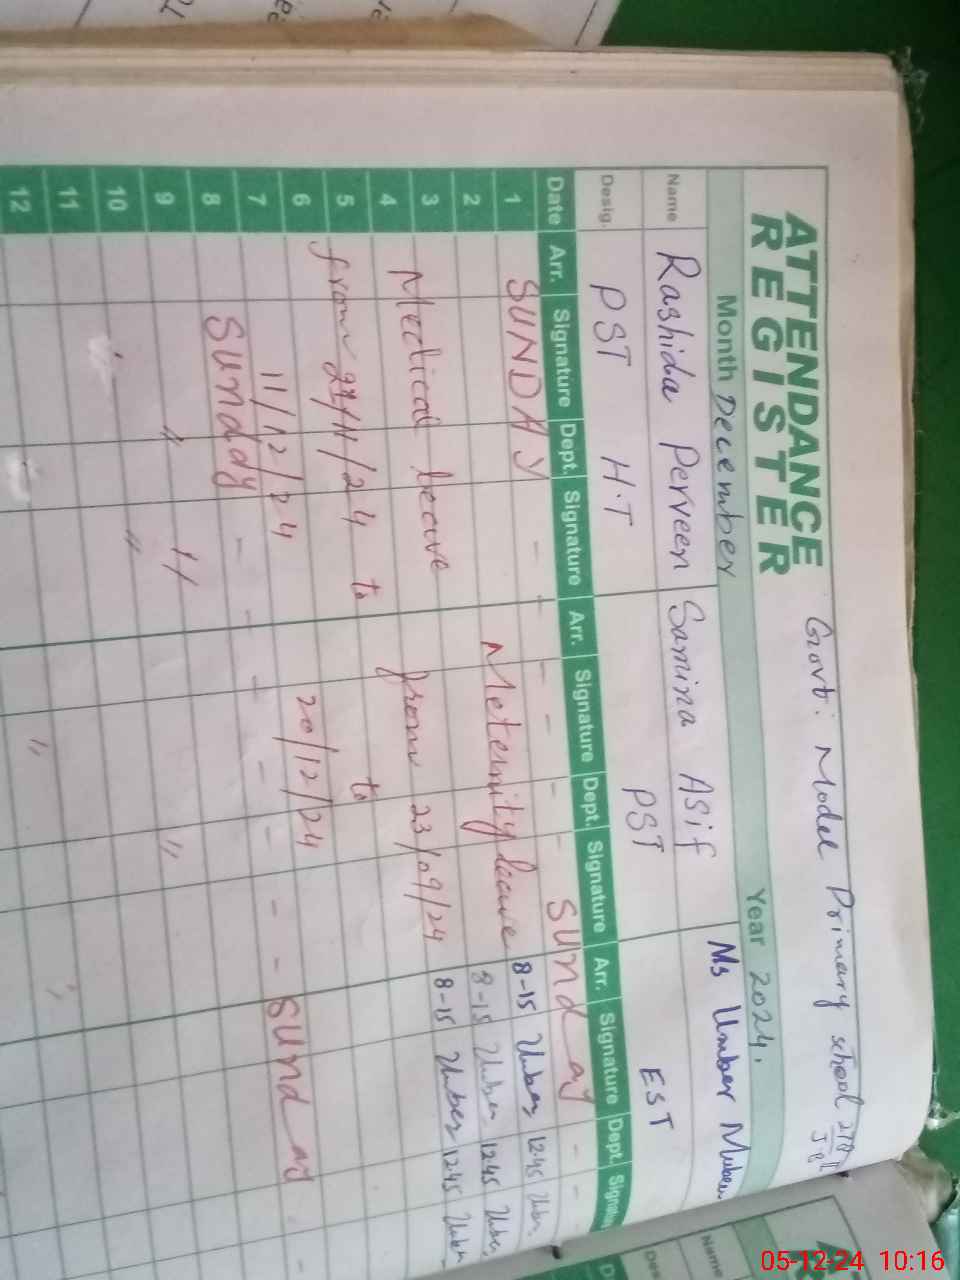 ATTENDANCE
REGISTER
Govt: Model Primary school
Month December Year 2024.
Name Rashida Perveen Samina Asif Ms Umber
Desig. PST H.T PST EST
Date Arr. Signature Dept. Signature Arr. Signature Dept. Signature Arr. Signature Dept. Signature
1 SUNDAY - - - - - - Sunday - -
2 Meternity leave 8-15 12:45
3 Medical leave from 23/09/24 8-15 12:45
4 to 8-15 12:45
5 from /11/24 to
6 11/12/24 20/12/24
7
8 Sunday - - - - - - - Sund -
9 " 11 "
10 "
11
12 "
Name
05-12-24 10:16